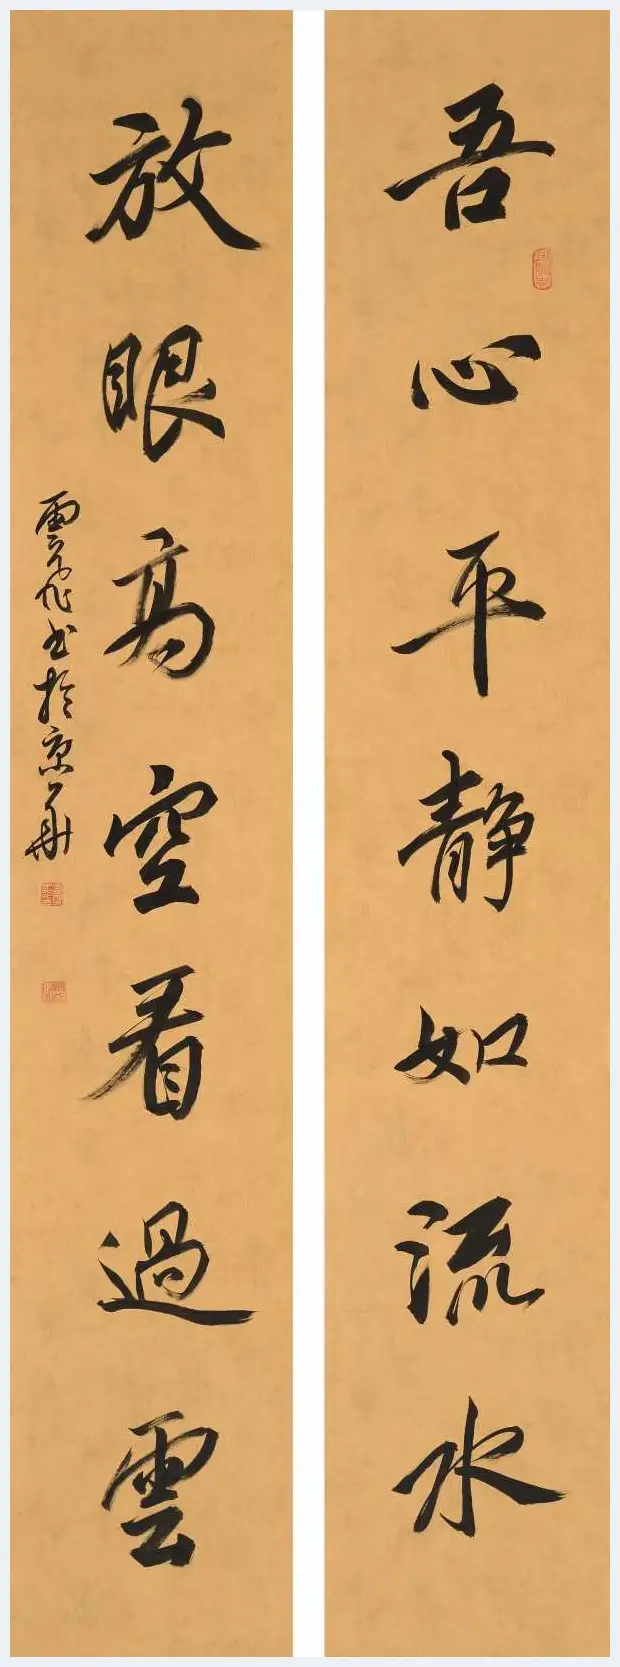 吾心平靜如流水
放眼高空看過雲
雲飛书於京華